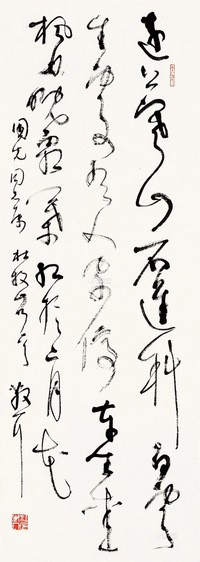 遠上寒山石徑斜白雲
生處有人家停車坐愛
楓林晚霜葉紅於二月花
國光同志屬杜牧散耳